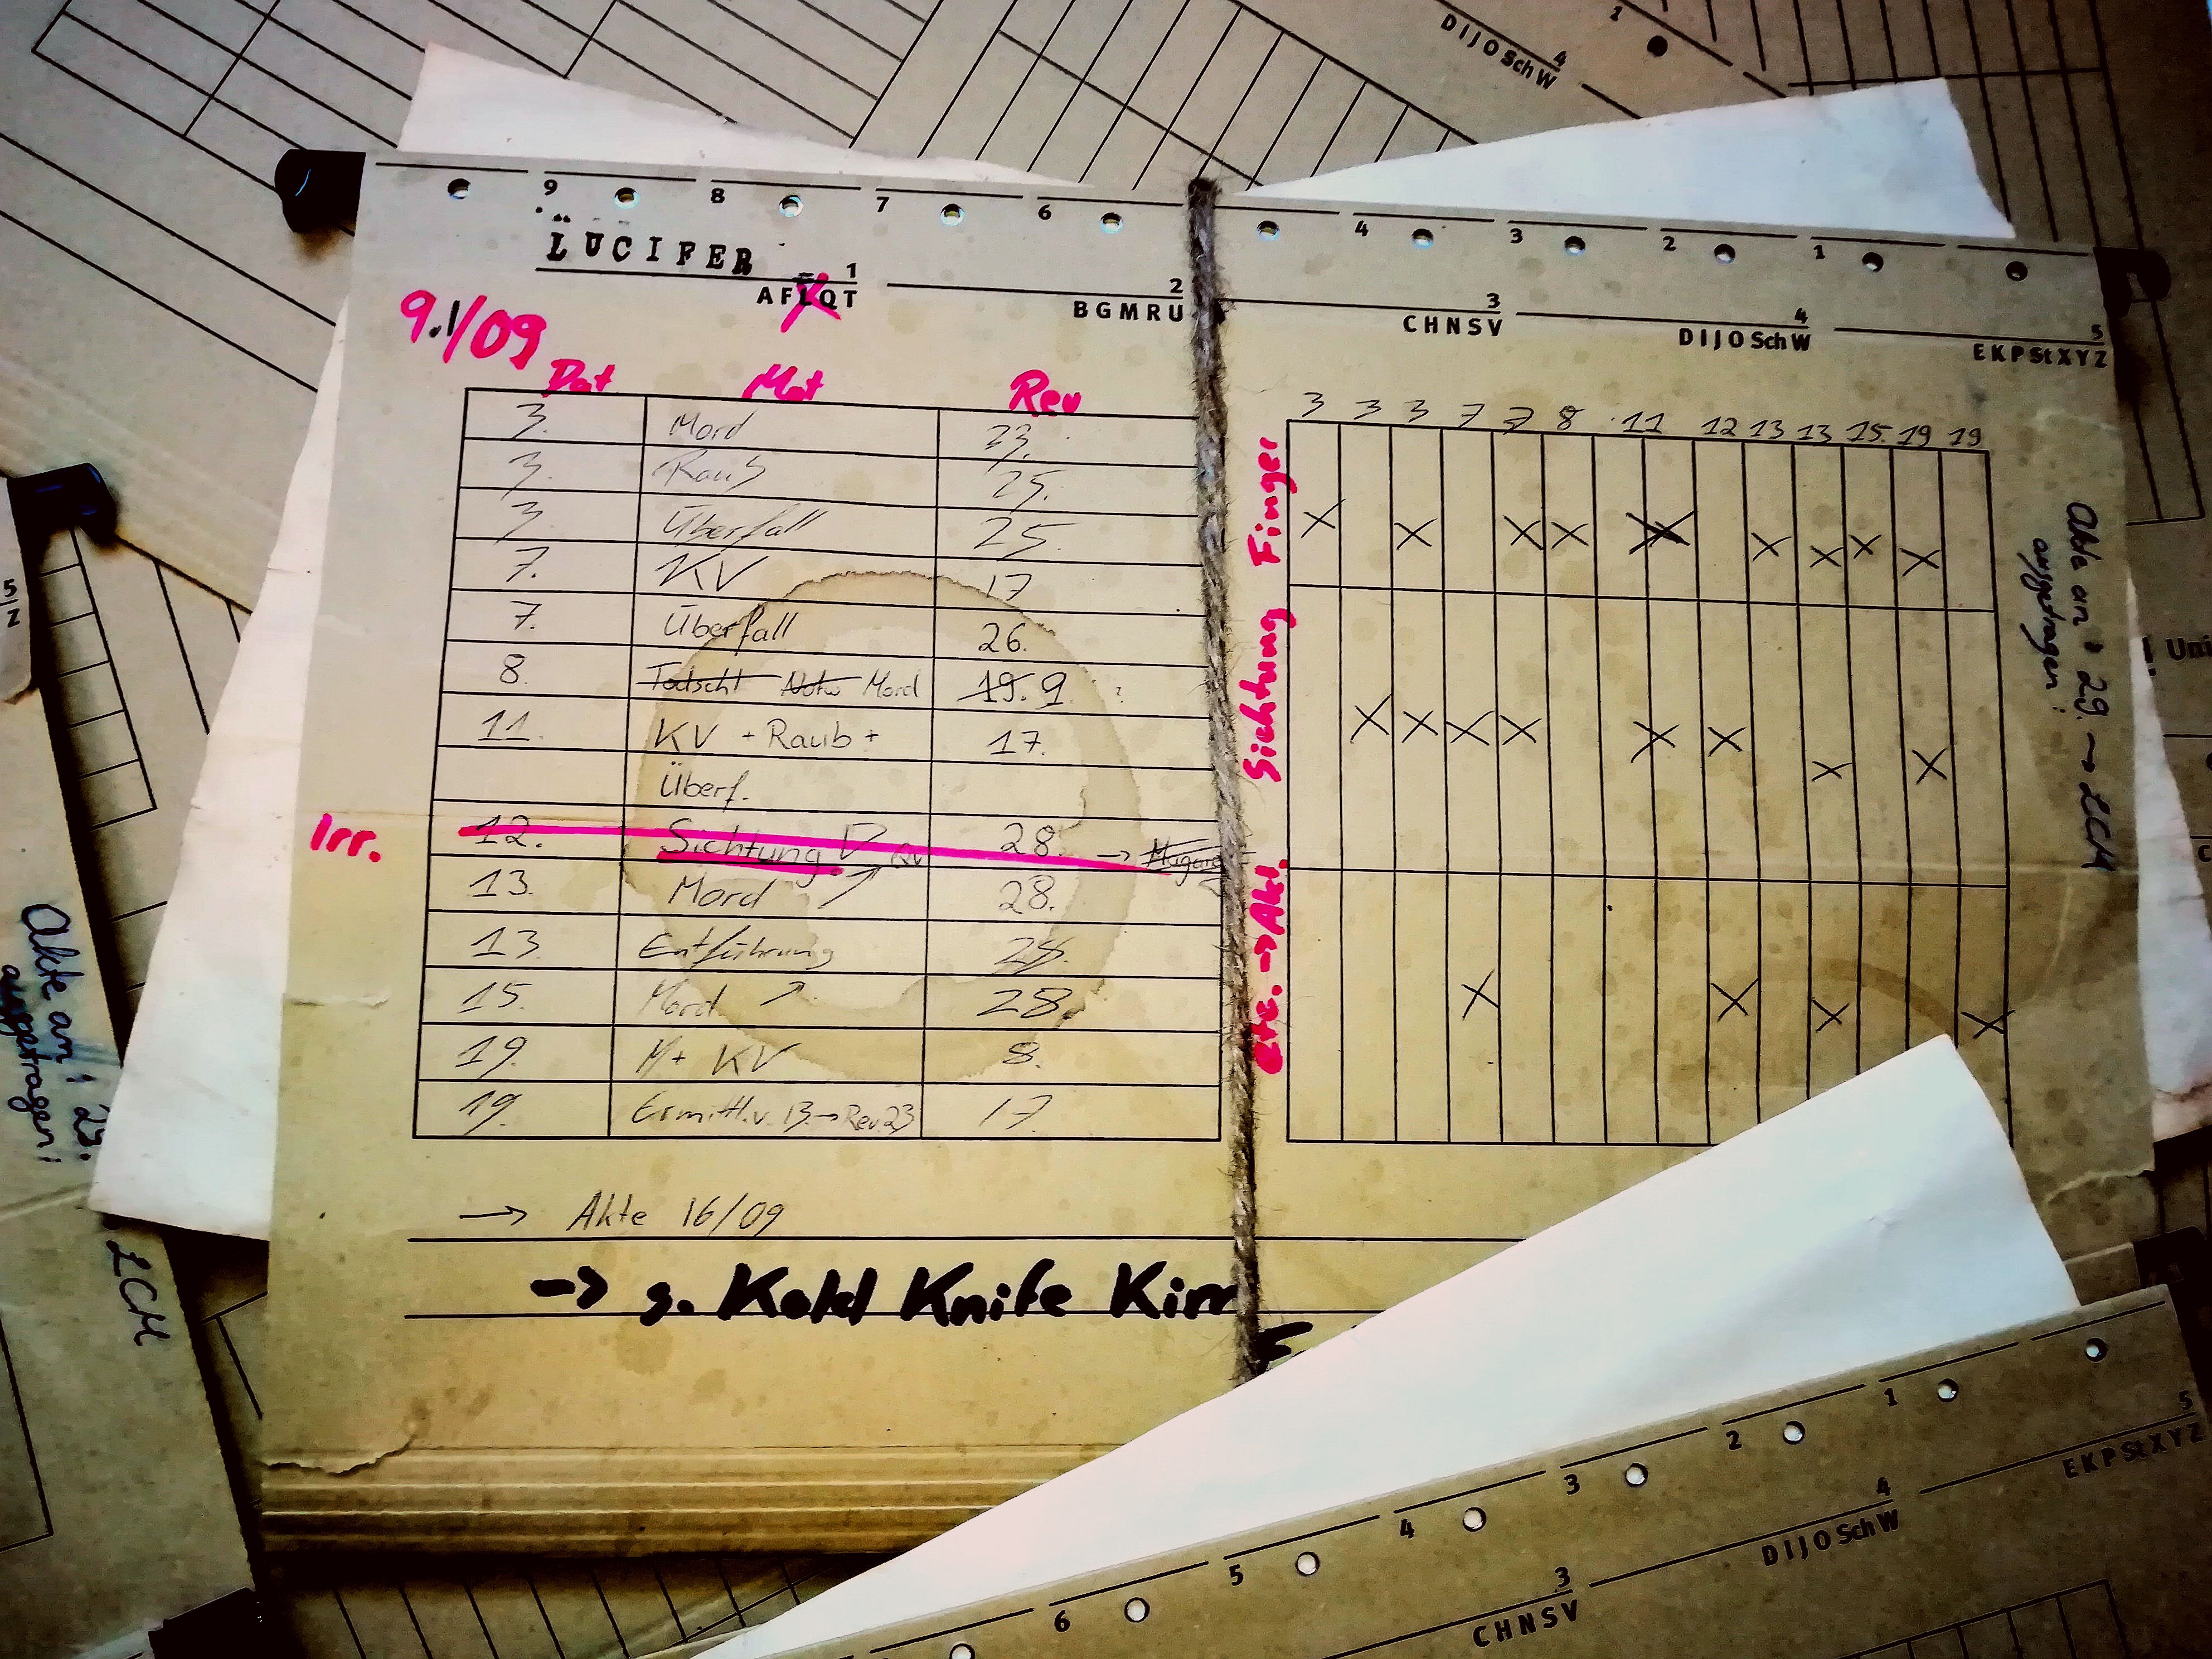 D I J O Sch W 4
1
9 8 7 6 4 3 2 1
LÜCIFER
1 2 3 4 5
A F L Q T B G M R U C H N S V D I J O Sch W E K P St X Y Z
9.1/09
Dat Mot Rev
3. Mord 23.
3. Raub 25.
3. Überfall 25.
7. KV 17
7. Überfall 26.
8. Todscht Notw Mord 19. 9
11. KV + Raub + 17.
Überf.
Irr. 12. Sichtung 28. →
13. Mord 28.
13 Entführung 28.
15. Mord 28.
19. M+ KV 8.
19. Ermittl. v. 13. → Rev. 23 17.
→ Akte 16/09
→ s. Kold Knife Kirr
3 3 3 7 7 8 11 12 13 13 15. 19 19
Finger
X X X X X X X X X
Sichtung
X X X X X X X X
etc. → Akt.
X X X X
Akte an: 29. → LCM
ausgetragen:
5
Z
Akte an: 29.
ausgetragen:
LCM
Uni
6 5 4 3 2 1
3 4 5
C H N S V D I J O Sch W E K P St X Y Z